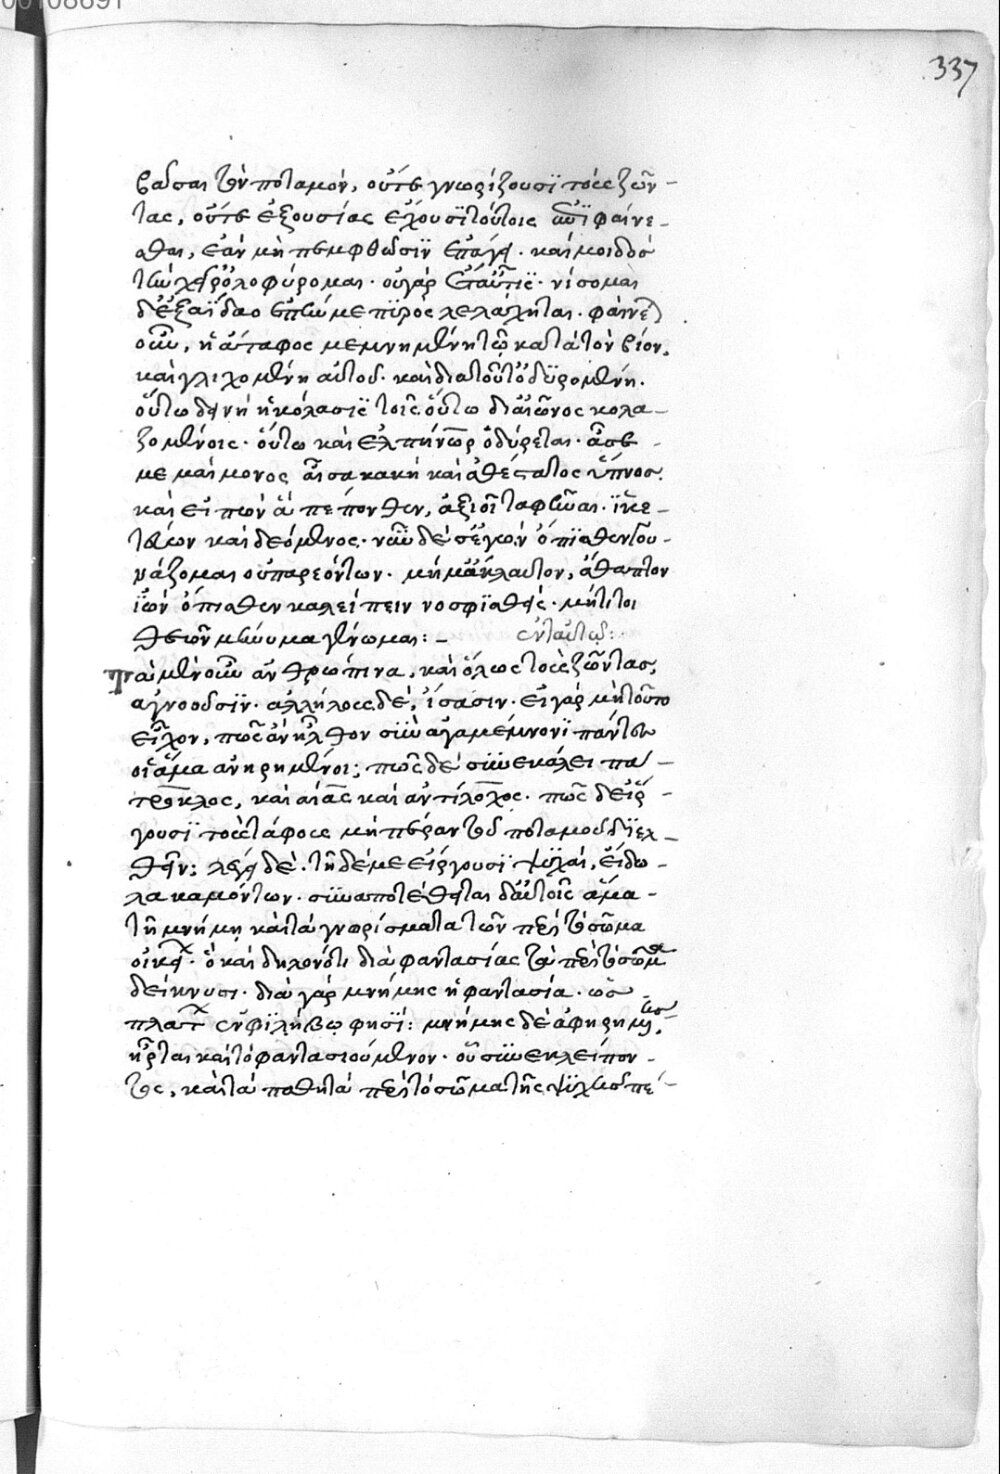 00108691
337
βᾶσαι τὸν ποταμόν, οὔτε γνωρίζουσϊ τοὺς ζῶν-
τας, οὔτε ἐξουσίας ἔχουσϊ τούτοις φαίνε-
σθαι, ἐὰν μὴ πεμφθῶσϊν ἐπάγει. καί μοι δὸς
τὴν χεῖρ' ὀλοφύρομαι. οὐ γὰρ ἔτ' αὖτις. νίσομαι
δ' ἐξ ἀΐδαο ἐπὴν με πϊρὸς λελάχητε. φαίνεται
οὖν, ἡ ἄταφος μεμνημένη τῶν κατὰ τὸν βίον.
καὶ γλιχομένη αὐτοῦ. καὶ διατοῦτο ὀδϋρομένη.
οὕτω δεινὴ ἡ κόλασις τοῖς οὕτω δι' αἰῶνος κολα-
ζομένοις. οὕτω καὶ ἐλπήνωρ ὀδύρεται. ἆσέ
με δαίμονος αἶσα κακὴ καὶ ἀθέσφατος ὕπνος.
καὶ εἰπὼν ἃ πέπονθεν, ἀξιοῖ ταφῆναι. ϊκε-
τεύων καὶ δεόμενος. νῦν δέ σε ἐγὼν ὀπϊθεν γου-
νάζομαι οὐ παρεόντων. μή μ' ἄκλαυτον, ἄθαπτον
ἰὼν ὄπιθεν καλείπειν νοσφϊσθείς. μή τί τοι
θεῶν μήνυμα γένωμαι: – ἐνταῦθα:
Τὰ μὲν οὖν ἀνθρώπινα, καὶ ὅλως τοὺς ζῶντας,
ἀγνοοῦσϊν. ἀλλήλους δὲ, ἴσασιν. εἰ γὰρ μὴ τοῦτο
εἶχον, πῶς ἀνῆλθον σὺν ἀγαμέμνονϊ πάντες
οἱ ἅμα ἀνῃρημένοι; πῶς δὲ συνεκάλει πά-
τροκλος, καὶ αἴας καὶ ἀντίλοχος. πῶς δ' εἴρ-
γουσϊ τοὺς ἀτάφους μὴ πέραν τοῦ ποταμοῦ δϊελ-
θεῖν; λέγει δὲ. τῆδέ με εἴργουσϊ ψυχαὶ, εἴδω-
λα καμόντων. συναποτέθειται δ' αὐτοῖς ἅμα-
τῆ μνήμη καὶ τὰ γνωρίσματα τῶν περὶ τὸ σῶμα
οἰκεῖ. ὃ καὶ δηλονότι διὰ φαντασίας τῶν περὶ τὸ σῶμα
δείκνυσι. διὰ γὰρ μνήμης ἡ φαντασία. ὡς
πλάτων ἐν φϊλήβῳ φησϊ: μνήμης δὲ ἀφῃρημένης
ἦρται καὶ τὸ φανταστούμενον. οὗ συνεκλείπον-
τος, καὶ τὰ παθητὰ περὶ τὸ σῶμα τῆς ψϋχῆς πέ-